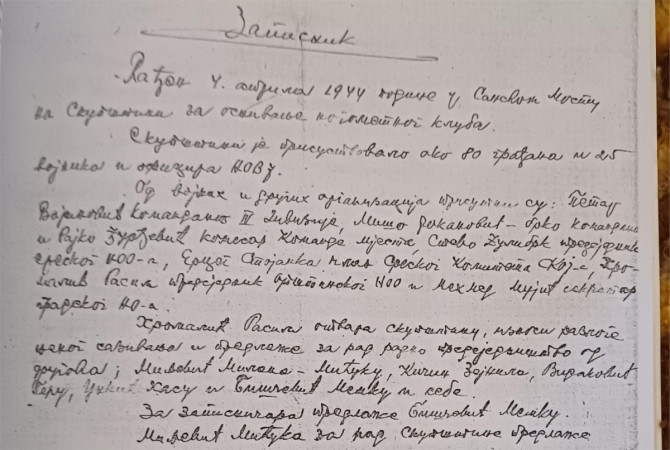 Записник
Рађен 4. априла 1944 године у Санском Мосту
на Скупштини за оснивање ногометног клуба.
Скупштини је присуствовало око 80 грађана и 25
војника и официра НОВЈ.
Од војних и других организација присутни су: Петар
Војиновић командант III дивизије, Мишо
и Рајко комесар Команде мјеста, Стево предсједник
среског НОО-а, Стојанка члан Среског Комитета КПЈ-е, Хро-
малић Расим предсједник општинског НОО и Мехмед Мујић секретар
градског НО-а.
Хромалић Расим отвара скупштину, износи разлоге
њеног сазивања и предлаже за рад радно предсједништво од
другова; Миљевић Милана - Мићуку, Видаковић
Перу, Хасу и Бишчевић Мешку и себе.
За записничара предлаже Бишчевић Мешку.
Миљевић Мићука за рад скупштине предлаже